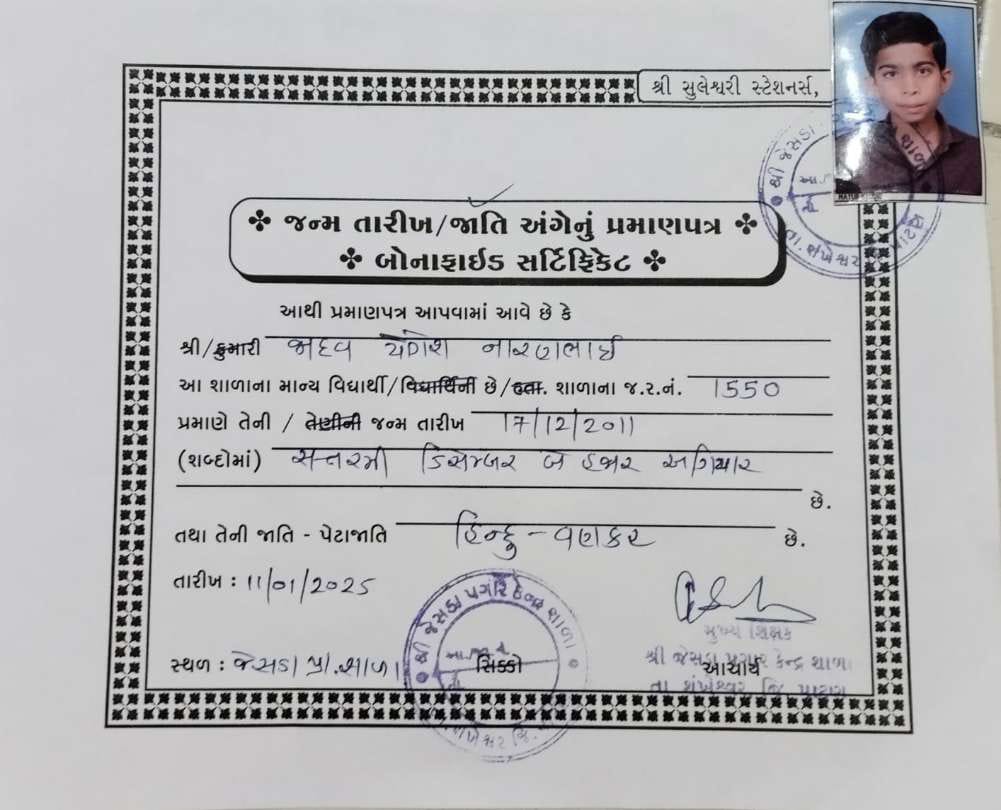 શ્રી સુલેશ્વરી સ્ટેશનર્સ,
જન્મ તારીખ/જાતિ અંગેનું પ્રમાણપત્ર
બોનાફાઈડ સર્ટિફિકેટ
આથી પ્રમાણપત્ર આપવામાં આવે છે કે
શ્રી/કુમારી જાદવ યોગેશ નારણભાઈ
આ શાળાના માન્ય વિદ્યાર્થી/વિદ્યાર્થિની છે/હતા. શાળાના જ.ર.નં. 1550
પ્રમાણે તેની / તેણીની જન્મ તારીખ 17/12/2011
(શબ્દોમાં) સત્તરમી ડિસેમ્બર બે હજાર અગિયાર
છે.
તથા તેની જાતિ - પેટાજાતિ હિન્દુ - વણકર છે.
તારીખ : 11/01/2025
મુખ્ય શિક્ષક
સ્થળ : જેસડા પ્રા.શાળા સિક્કો આચાર્ય
શ્રી જેસડા પગાર કેન્દ્ર શાળા
તા શંખેશ્વર જિ પાટણ
શ્રી જેસડા પગાર કેન્દ્ર શાળા
શંખેશ્વર જિ.
શ્રી જેસડા
શાળા
તા. શંખેશ્વર